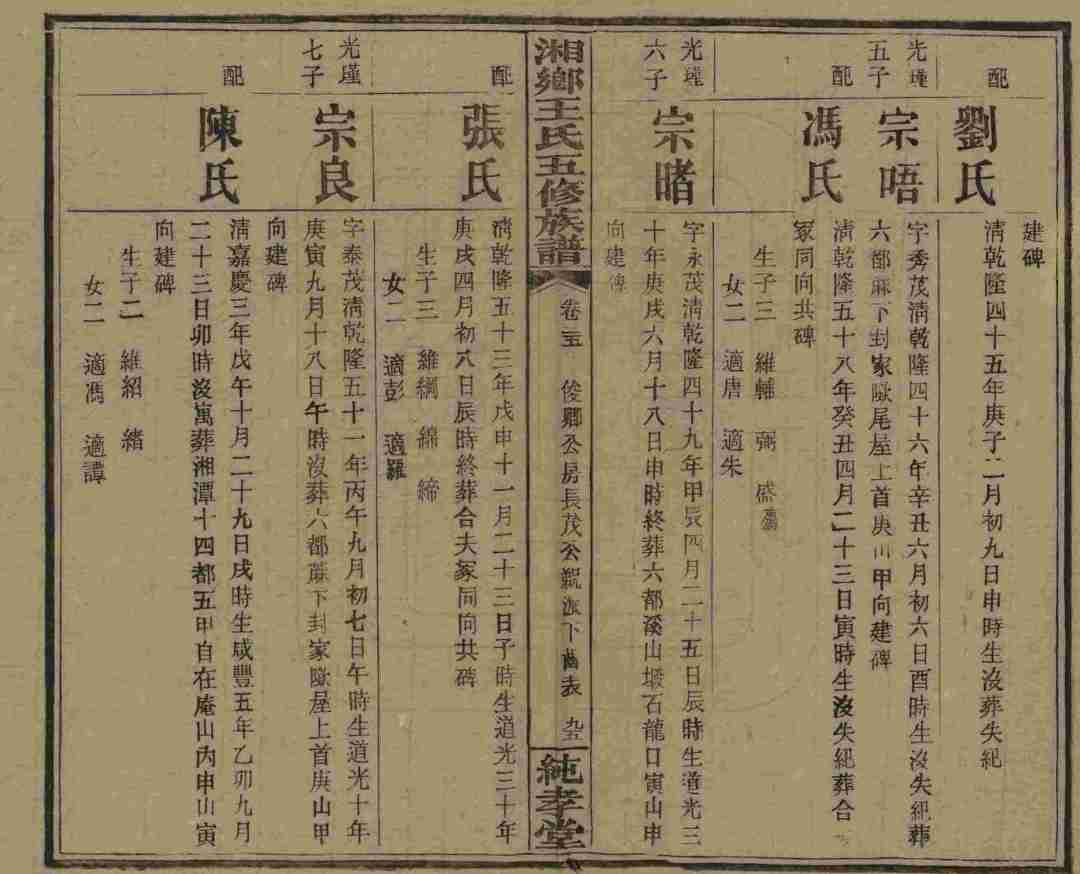 建碑
配
劉氏
淸乾隆四十五年庚子二月初九日申時生沒葬失紀
光瑾五子
宗唔
字秀茂淸乾隆四十六年辛丑六月初六日酉時生沒失紀葬
六都麻下封家嶽尾屋上首庚山甲向建碑
配
馮氏
淸乾隆五十八年癸丑四月二十三日寅時生沒失紀葬合
冢同向共碑
生子三 維輔 弼 盛
女二 適唐 適朱
光瑾六子
宗暏
字永茂淸乾隆四十九年甲辰四月二十五日辰時生道光三
十年庚戌六月十八日申時終葬六都溪山塅石龍口寅山申
向建碑
湘鄉王氏五修族譜
卷 俊卿公房長茂公 派下齒表
純孝堂
配
張氏
淸乾隆五十三年戊申十一月二十三日子時生道光三十年
庚戌四月初八日辰時終葬合夫冢同向共碑
生子三 維綱 綿 締
女二 適彭 適羅
光瑾七子
宗良
字泰茂淸乾隆五十一年丙午九月初七日午時生道光十年
庚寅九月十八日午時沒葬六都蔴下封家嶽屋上首庚山甲
向建碑
配
陳氏
淸嘉慶三年戊午十月二十九日戌時生咸豐五年乙卯九月
二十三日卯時沒寓葬湘潭十四都五甲自在庵山丙申山寅
向建碑
生子二 維紹 緒
女二 適馮 適譚